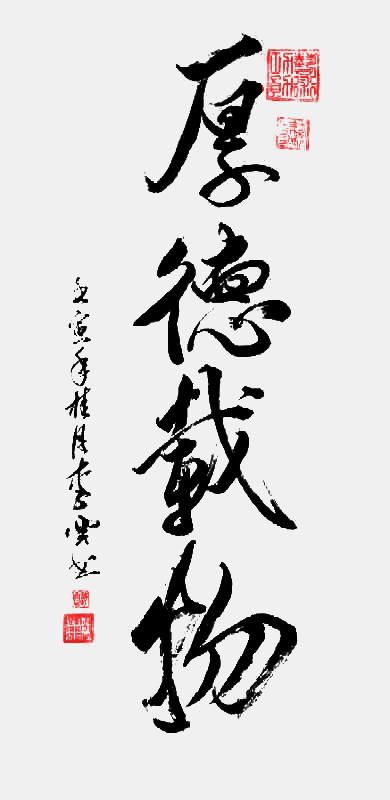 厚德载物
壬寅年桂月李